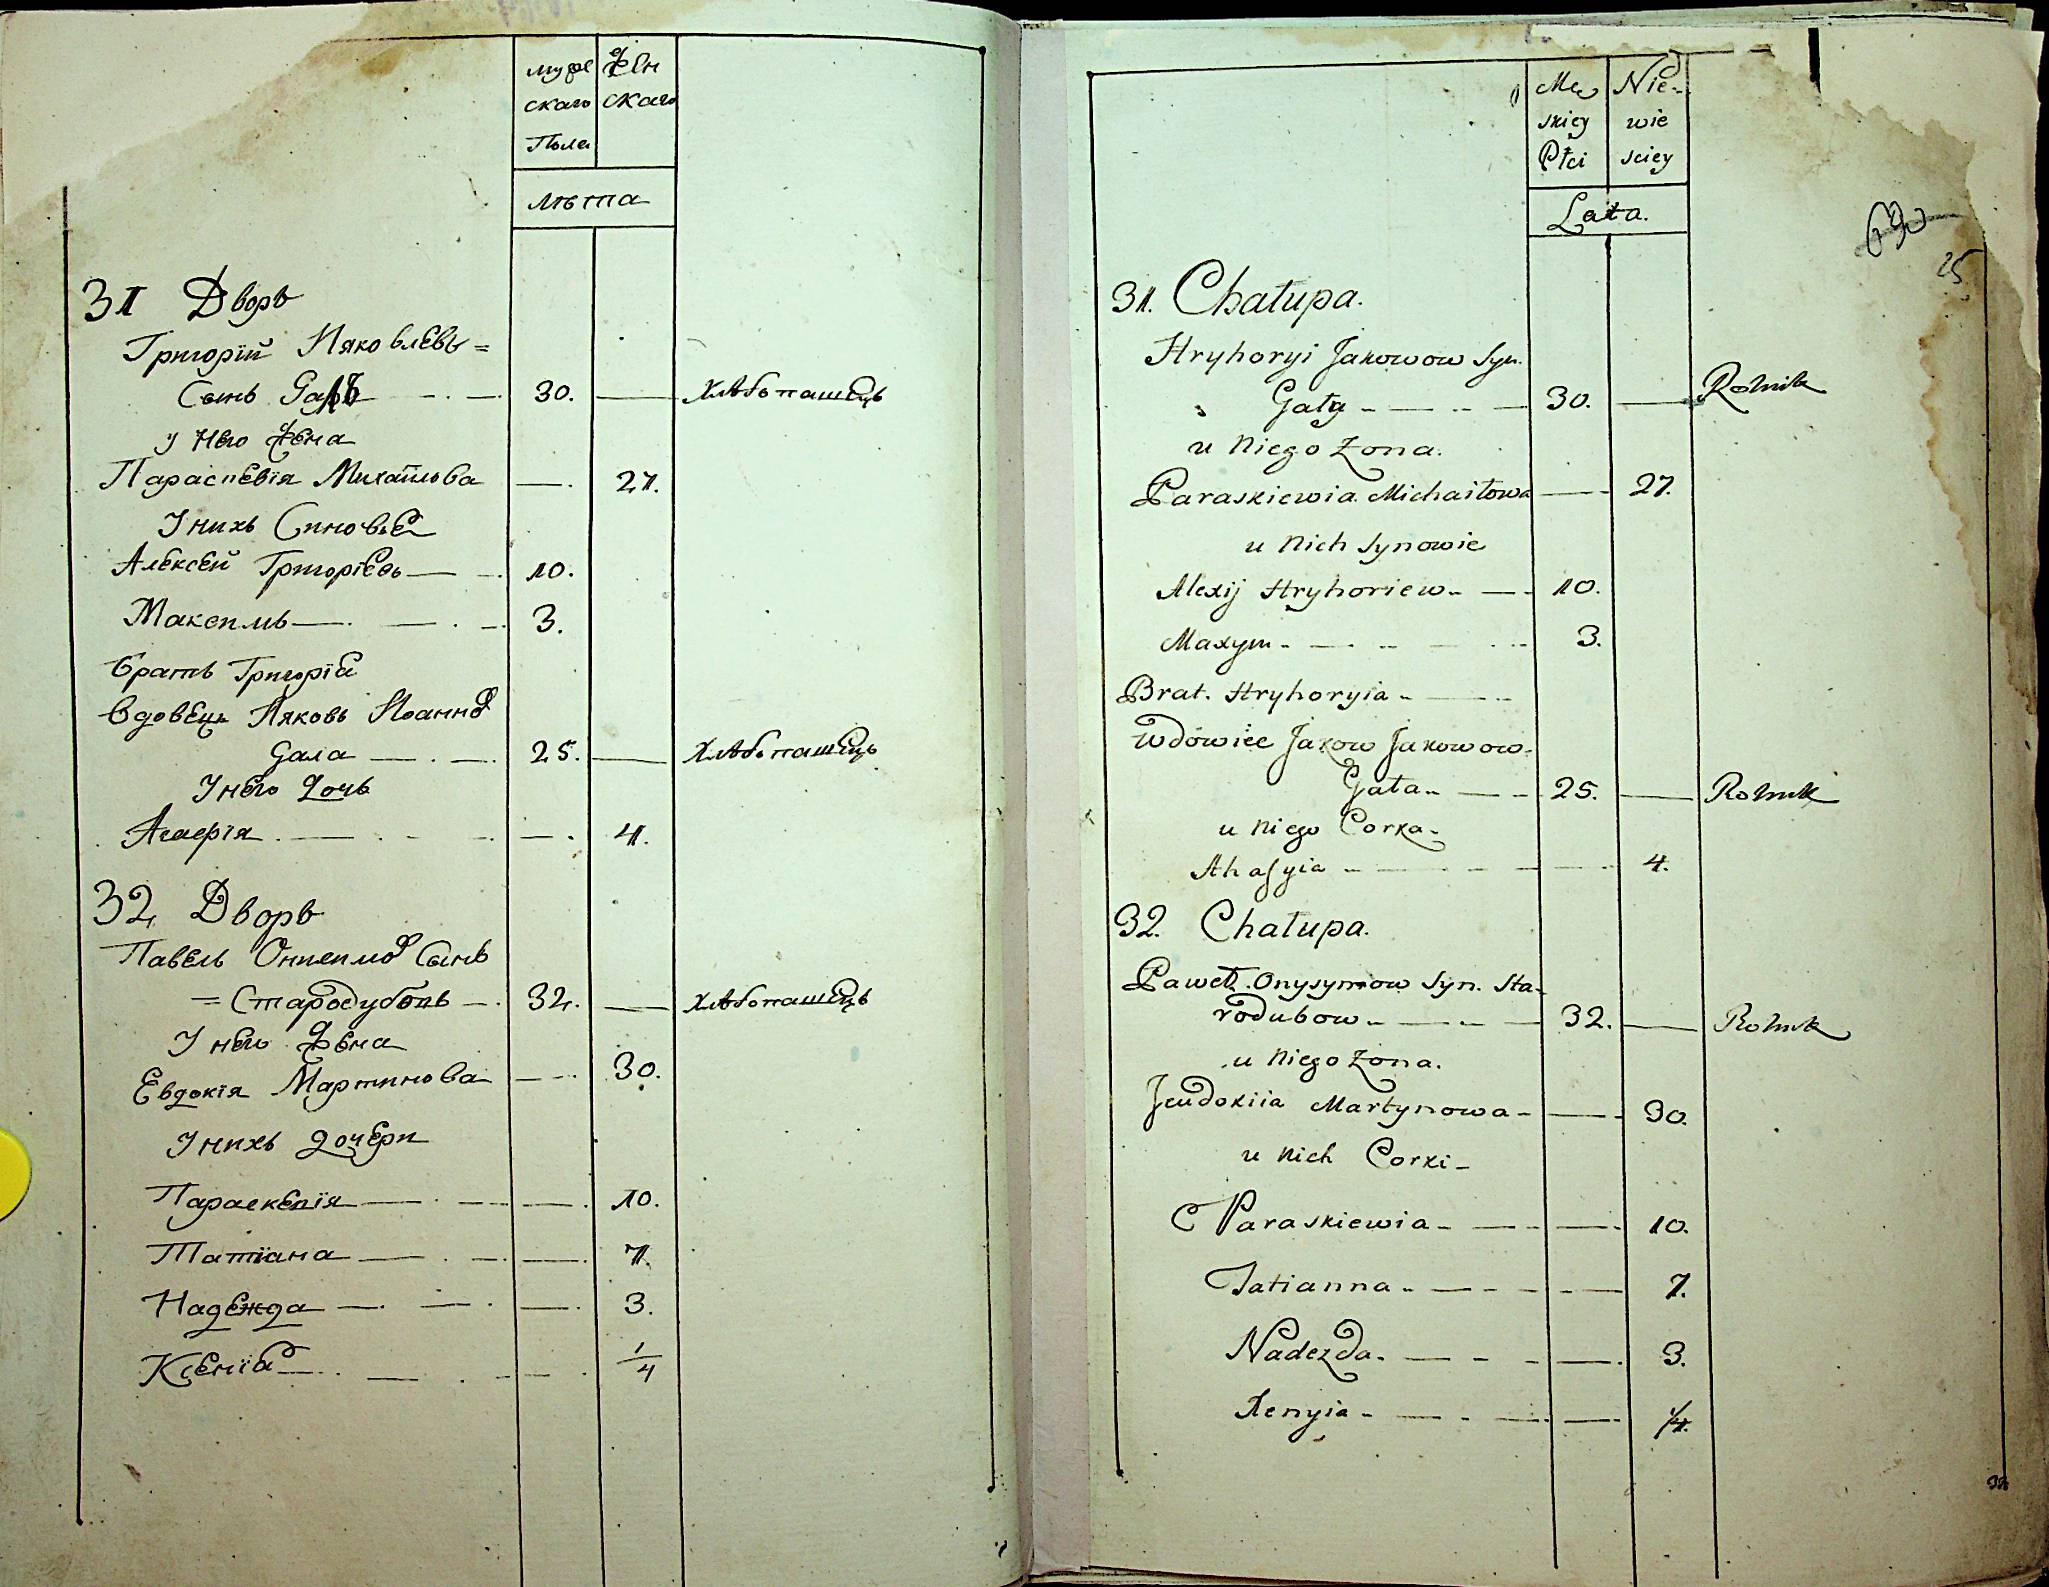 мужескаго Пола
женскаго
лѣта
31 Дворъ
Григорїй Ияковлевъ=
Сынъ Галъ 30. хлѣбопашецъ
у него жена
Параскевїя Михайлова 27.
У нихъ Синовье
Алексей Григорїевъ 10.
Максимъ 3.
братъ Григорїя
вдовецъ Ияковъ Иоаннов
Гала 25. хлѣбопашецъ
У него дочь
Агафїя 4.
32 Дворъ
Павелъ Онисимов Сынъ
=Стародубовъ 32. хлѣбопашецъ
У него жена
Евдокїя Мартинова 30.
У нихъ дочери
Параскевїя 10.
Татїана 7.
Надежда 3.
Ксенїа 1/4
Męskiey Płci
Niewiesciey
Lata.
690
25
31. Chałupa.
Hryhoryi Jakowow Syn.
Gały 30. Rolnik
u Niego Zona.
Paraskiewia Michaiłowa 27.
u Nich Synowie
Alexij Hryhoriew 10.
Maxym 3.
Brat. Hryhoryia
Wdowiec Jakow Jakowow
Gała 25. Rolnik
u Niego Corka
Ahafyia 4.
32. Chałupa.
Paweł Onysymow Syn. Sta-
rodubow 32. Rolnik
u Niego Zona.
Jeudokiia Martynowa 30.
u Nich Corki
Paraskiewia 10.
Tatianna 7.
Nadezda 3.
Xenyia 1/4.